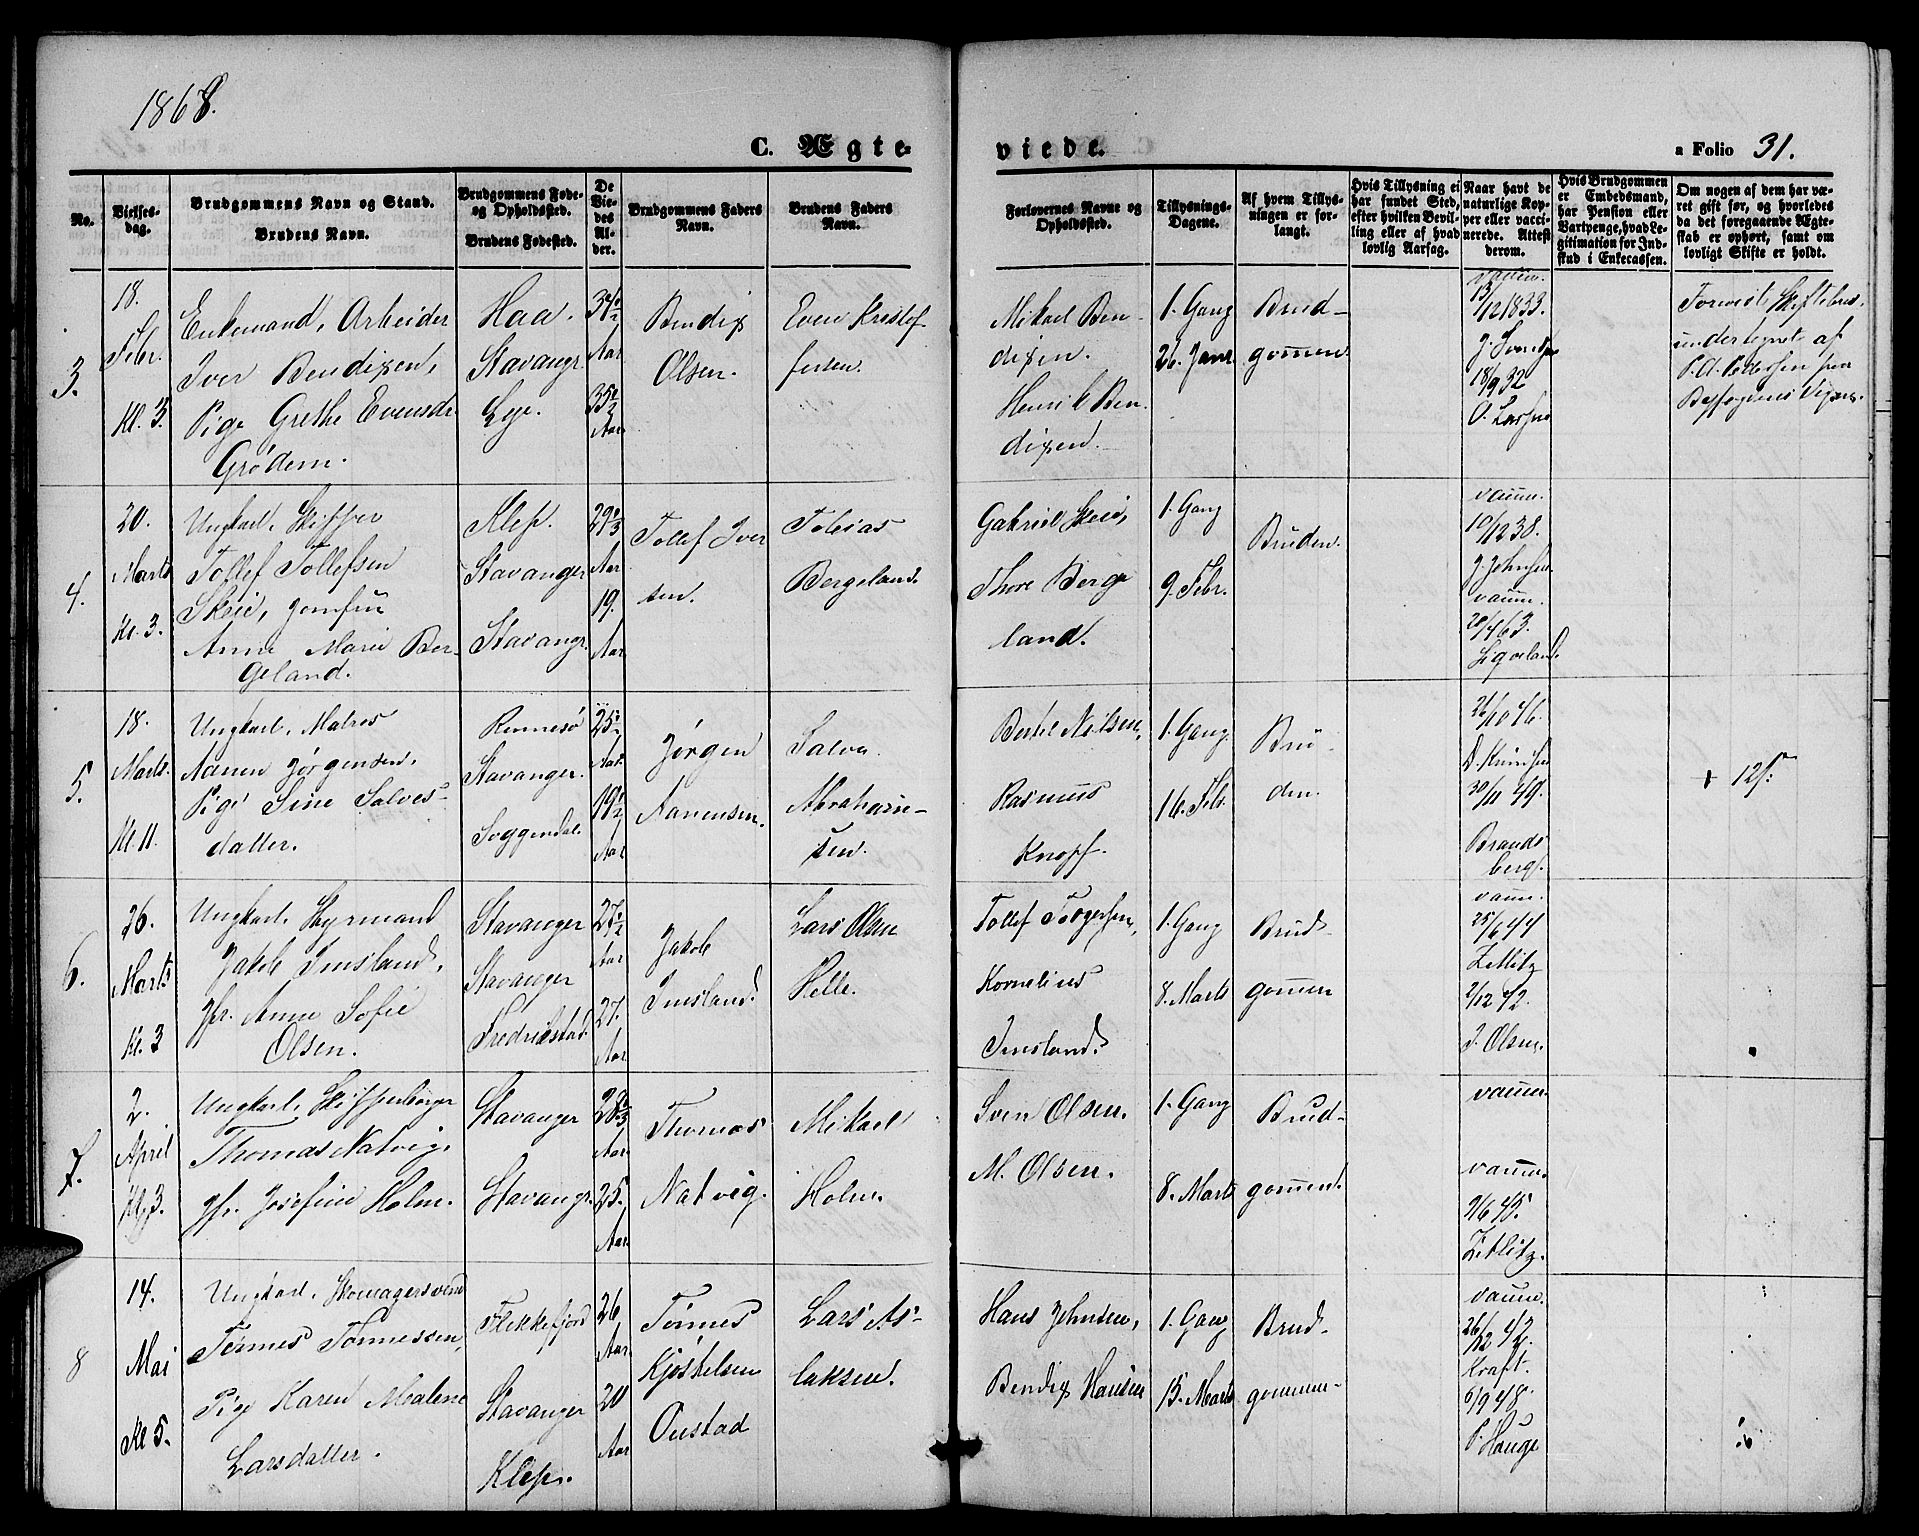 1868.
C. Ægte-
viede.
a Folio 31.
No.
Vielses-
dag.
Brudgommens Navn og Stand.
Brudens Navn.
Brudgommens Føde-
og Opholdssted.
Brudens Fødested.
De
Vie-
des
Al-
der.
Brudgommens Faders
Navn.
Brudens Faders
Navn.
Forlovernes Navne og
Opholdssted.
Tillysnings-
Dagene.
Af hvem Tillys-
ningen er for-
langt.
Hvis Tillysning ei
har fundet Sted,
efter hvilken Bevil-
ling eller af hvad
lovlig Aarsag.
Naar havt de
naturlige Kop-
per eller vacci-
nerede. Attest
derom.
Hvis Brudgommen
er Embedsmand,
har Pension eller
Vartpenge, hvad Le-
gitimation for Ind-
skud i Enkecassen.
Om nogen af dem har væ-
ret gift før, og hvorledes
da det foregaaende Ægte-
skab er ophørt, samt om
lovligt Skifte er holdt.
3.
18.
Febr.
Kl. 3.
Enkemand, Arbeider
Iver Bendixen,
Pige Grethe Evensdr
Grödem.
Haa.
Stavangr
Lye.
Aar
Aar
Bendix
Olsen.
Even Kristof
fersen.
Mikael Ben-
dixen.
Henrik Ben
dixen.
1. Gang
26. Janr.
Brud-
gommen.
vaccin.
13/12 1833.
18/9 32
undertegnet af
4.
20.
Marts
Kl. 3.
Ungkarl, Skipper
Tollef Tollefsen
Skeie, Jomfru
Anne Marie Ber-
geland.
Klep.
Stavanger
Stavangr.
Aar
19.
Aar
Tollef Iver
sen.
Tobias
Bergeland.
Gabriel Skeie,
Thore Berge
land.
1. Gang
9. Febr.
Bruden.
vaccin.
10/12 38.
J. Johnsen
vaccin.
20/4 63.
Sigveland.
5.
18.
Marts.
Kl. 11.
Ungkarl, Matros
Aanen Jörgensen,
Pige Sine Salves-
datter.
Rennesö
Stavanger.
Soggendal.
Aar.
Aar
Jörgen
Aanensen.
Salve
Abraham-
sen.
Bertel Nilsen,
Rasmus
Knopf.
1. Gang.
16. Feb.
Bru-
den.
26/10 46.
30/11 49.
Brands
berg.
6.
26.
Marts
Kl. 3
Ungkarl, Styrmand
Jakob Imsland,
Jfr. Anne Sofie
Olsen.
Stavanger
Stavanger
Fredrikstad.
Aar
27.
Aar
Jakob
Imsland.
Lars Olsen
Helle.
Tollef Torgersen,
Kornelius
Imsland.
1. Gang
8. Marts
Brud-
gommen
vaccin.
25/6 44
Zetlitz
2/12 42.
J. Olsen.
7.
2.
April
Kl. 3.
Ungkarl, Skipperborger
Thomas Natvig,
Jfr. Josefine Holm.
Stavanger
Stavangr.
Aar
25.
Aar
Thomas
Natvig.
Mikael
Holm.
Sven Olsen.
M. Olsen.
1. Gang
8. Marts
Brud-
gommen.
vaccin.
vaccin.
Zetlitz.
8
14.
Mai
Kl 5.
Ungkarl, Skomagersvend
Tönnes Tönnessen,
Pige Karen Malene
Larsdatter.
Flekkefjord
Stavanger
Klep.
26
Aar.
20
Aar
Tönnes
Kjöstelsen
Lars As-
laksen.
Hans Johnsen,
Bendix Hansen
1. Gang
15. Marts
Brud-
gommen-
vaccin.
Kraft.
6/9 48.
P. Hauge